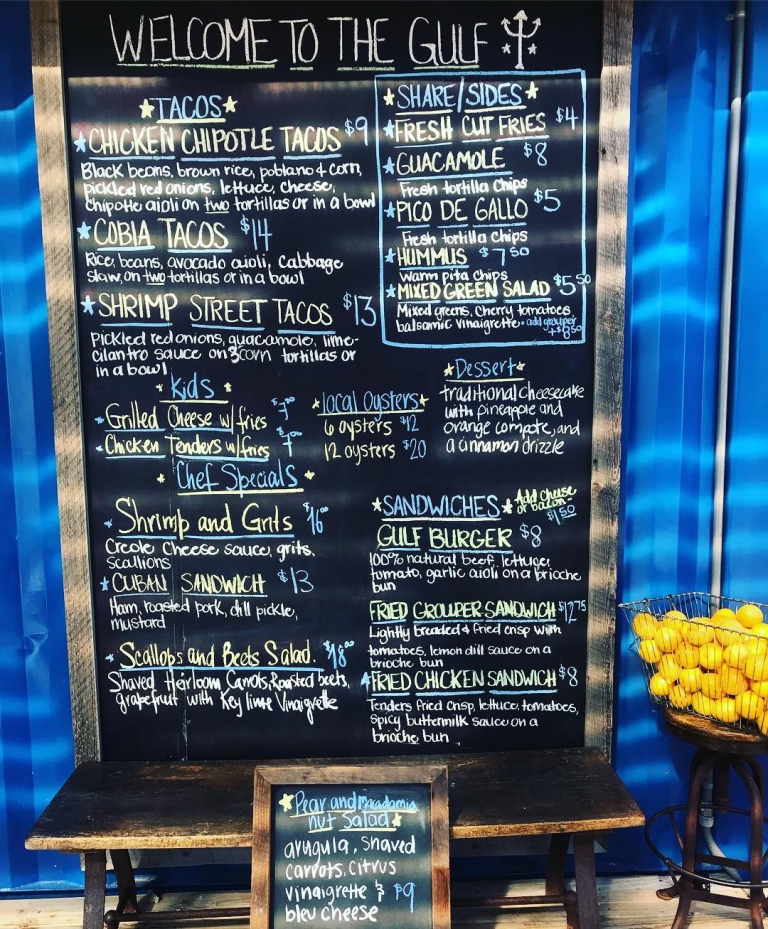 WELCOME TO THE GULF
TACOS
CHICKEN CHIPOTLE TACOS $9
Black beans, brown rice, poblano & corn,
pickled red onions, lettuce, cheese,
chipotle aioli on two tortillas or in a bowl
COBIA TACOS $14
Rice, beans, avocado aioli, cabbage
slaw, on two tortillas or in a bowl
SHRIMP STREET TACOS $13
Pickled red onions, guacamole, lime-
cilantro sauce on 3 corn tortillas or
in a bowl
SHARE/SIDES
FRESH CUT FRIES $4
GUACAMOLE $8
Fresh tortilla chips
PICO DE GALLO $5
Fresh tortilla chips
HUMMUS $7.50
warm pita chips
MIXED GREEN SALAD $5.50
Mixed greens, cherry tomatoes
balsamic vinaigrette - add grouper
+$8.50
Kids
Grilled Cheese w/ fries $7.00
Chicken Tenders w/ fries $7.00
Local Oysters
6 oysters $12
12 oysters $20
Dessert
traditional cheesecake
with pineapple and
orange compote, and
a cinnamon drizzle
Chef Specials
Shrimp and Grits $16
Creole cheese sauce, grits,
scallions
CUBAN SANDWICH $13
Ham, roasted pork, dill pickle,
mustard
Scallops and Beets Salad $18.00
Shaved Heirloom Carrots, Roasted beets,
grapefruit with Key lime Vinaigrette
SANDWICHES
Add cheese
or bacon-
$1.50
GULF BURGER $8
100% natural beef, lettuce,
tomato, garlic aioli on a brioche
bun
FRIED GROUPER SANDWICH $12.75
Lightly breaded & fried crisp with
tomatoes, lemon dill sauce on a
brioche bun
FRIED CHICKEN SANDWICH $8
Tenders fried crisp, lettuce, tomatoes,
spicy buttermilk sauce on a
brioche bun
Pear and macadamia
nut Salad
arugula, shaved
carrots, citrus
vinaigrette & $9
bleu cheese